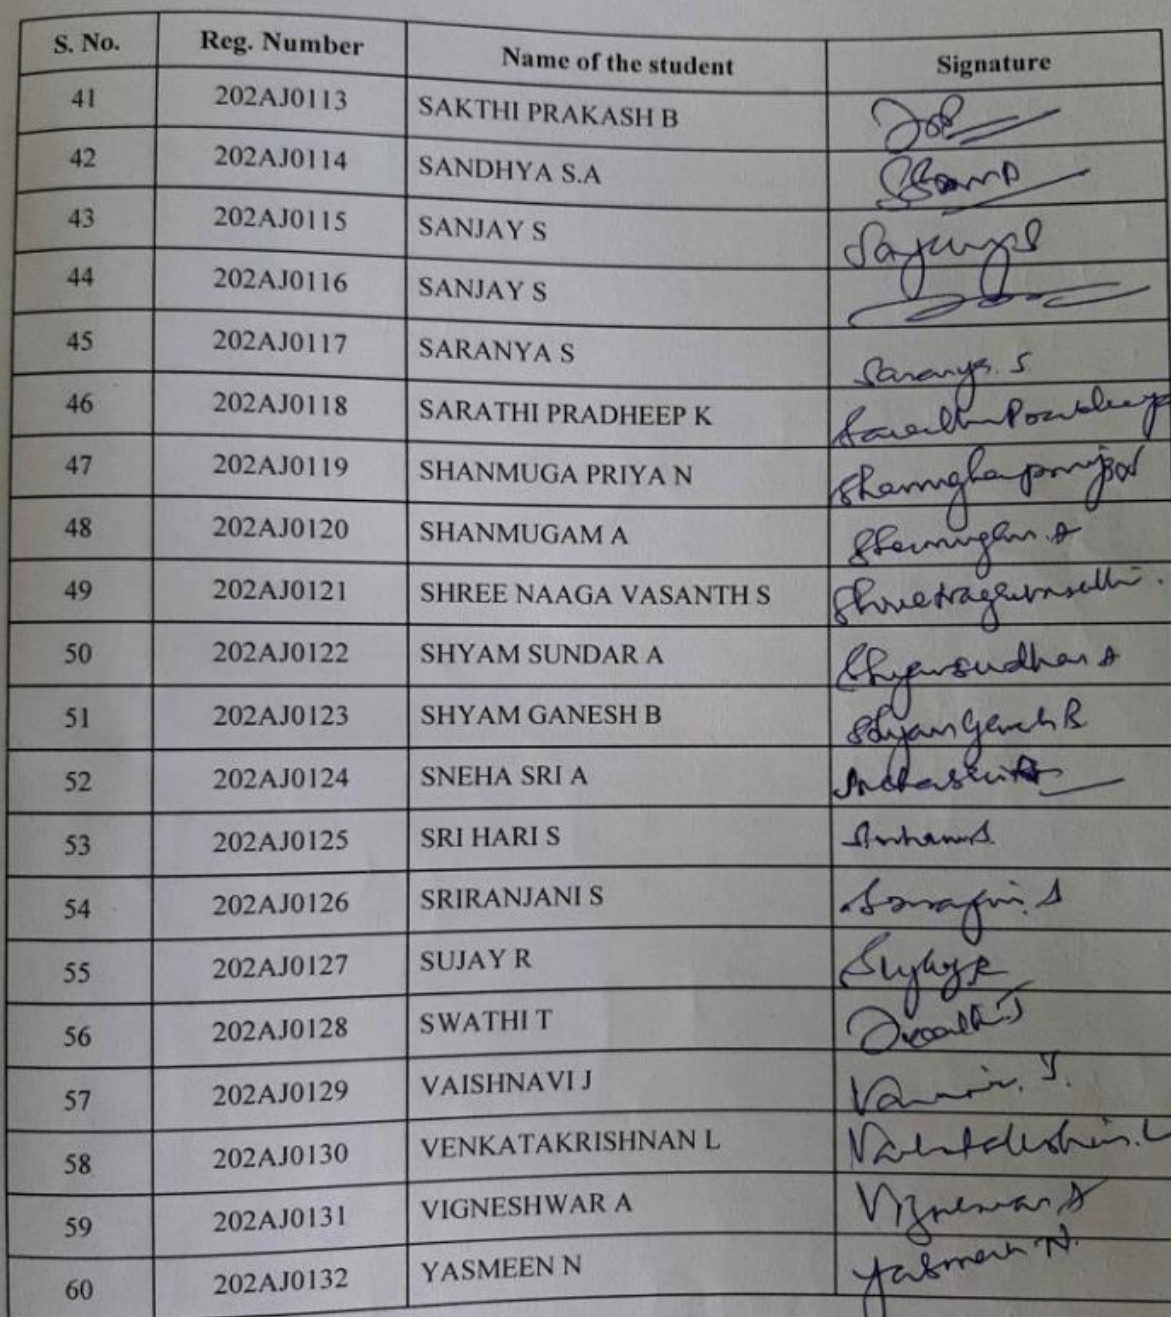 S. No. Reg. Number Name of the student Signature
41 202AJ0113 SAKTHI PRAKASH B
42 202AJ0114 SANDHYA S.A
43 202AJ0115 SANJAY S
44 202AJ0116 SANJAY S
45 202AJ0117 SARANYA S Saranya. S
46 202AJ0118 SARATHI PRADHEEP K
47 202AJ0119 SHANMUGA PRIYA N
48 202AJ0120 SHANMUGAM A
49 202AJ0121 SHREE NAAGA VASANTH S
50 202AJ0122 SHYAM SUNDAR A
51 202AJ0123 SHYAM GANESH B
52 202AJ0124 SNEHA SRI A
53 202AJ0125 SRI HARI S
54 202AJ0126 SRIRANJANI S
55 202AJ0127 SUJAY R
56 202AJ0128 SWATHI T
57 202AJ0129 VAISHNAVI J
58 202AJ0130 VENKATAKRISHNAN L
59 202AJ0131 VIGNESHWAR A
60 202AJ0132 YASMEEN N Yasmeen N.